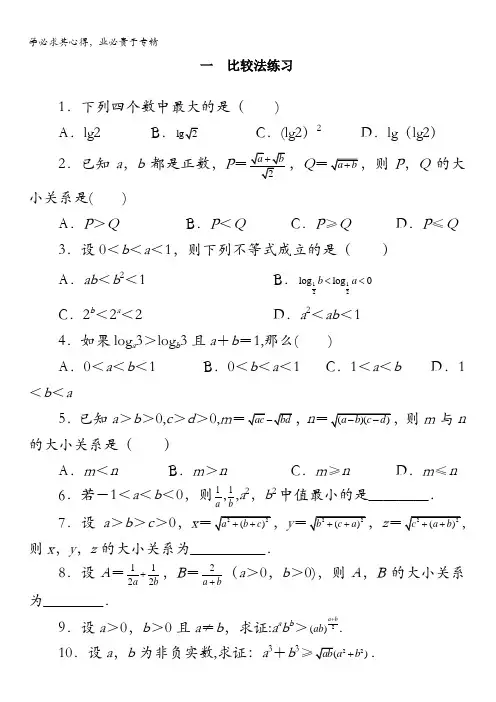 学必求其心得,业必贵于专精
一 比较法练习
1.下列四个数中最大的是( )
A.lg2 B.lg√2 C.(lg2)² D.lg(lg2)
2.已知a,b都是正数,P=(√a+√b)/√2,Q=√(a+b),则P,Q的大
小关系是( )
A.P>Q B.P<Q C.P≥Q D.P≤Q
3.设0<b<a<1,则下列不等式成立的是( )
A.ab<b²<1 B.log_{1/2} b<log_{1/2} a<0
C.2ᵇ<2ᵃ<2 D.a²<ab<1
4.如果logₐ3>log_b3且a+b=1,那么( )
A.0<a<b<1 B.0<b<a<1 C.1<a<b D.1
<b<a
5.已知a>b>0,c>d>0,m=√(ac)-√(bd),n=√((a-b)(c-d)),则m与n
的大小关系是( )
A.m<n B.m>n C.m≥n D.m≤n
6.若-1<a<b<0,则1/a,1/b,a²,b²中值最小的是________.
7.设a>b>c>0,x=√(a²+(b+c)²),y=√(b²+(c+a)²),z=√(c²+(a+b)²),
则x,y,z的大小关系为__________.
8.设A=1/(2a)+1/(2b),B=2/(a+b)(a>0,b>0),则A,B的大小关系
为________.
9.设a>0,b>0且a≠b,求证:aᵃbᵇ>(ab)^((a+b)/2).
10.设a,b为非负实数,求证:a³+b³≥√(ab)(a²+b²).